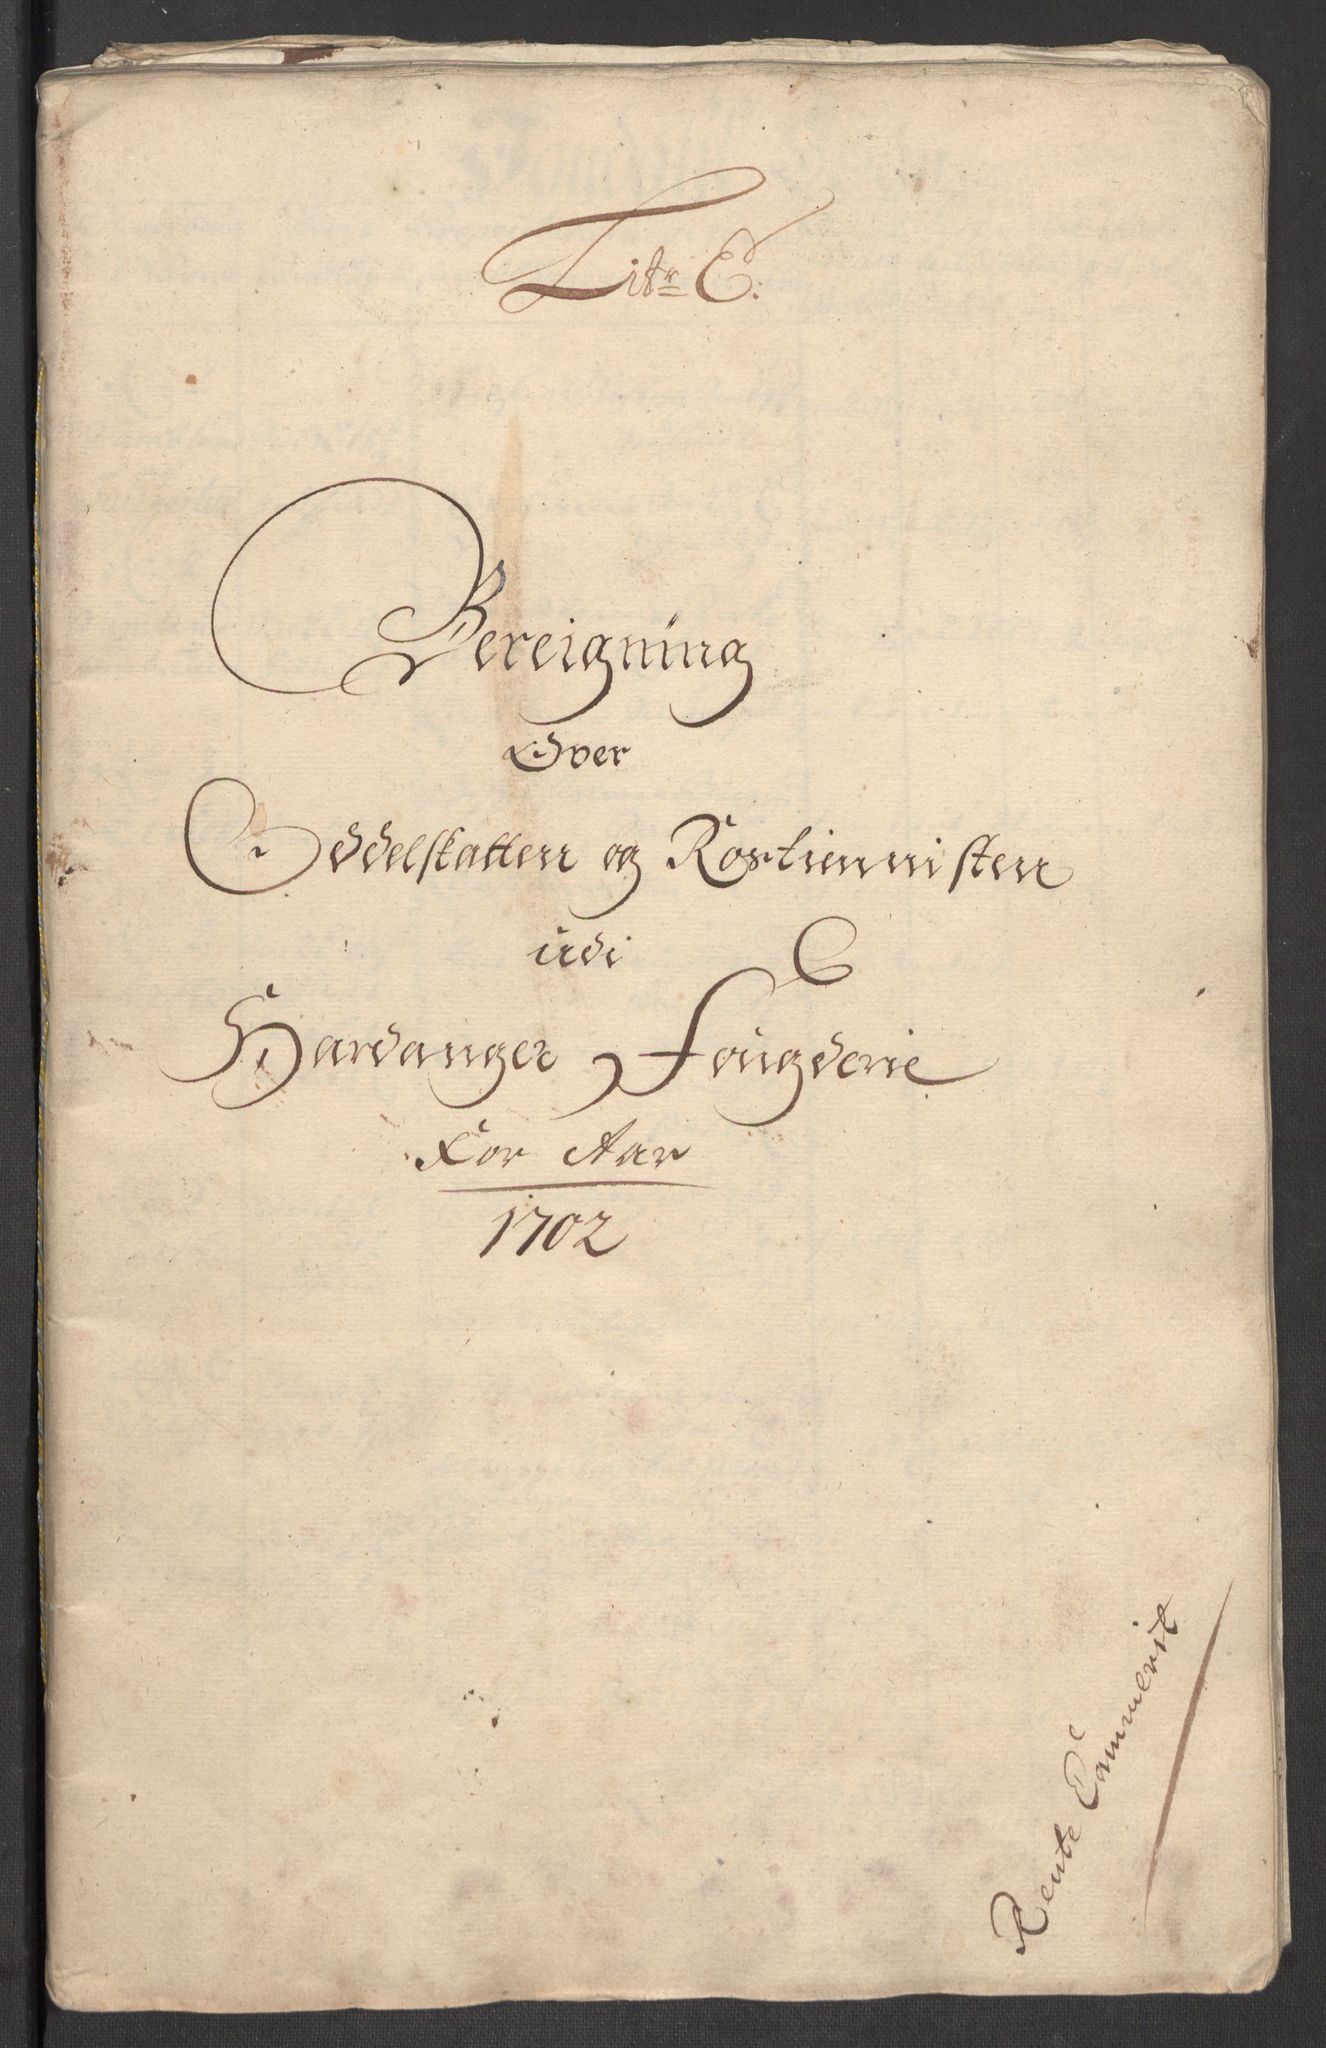 Litr E.
Bereigning
Over
Oddelskatten og Rostiennisten
udi
Hardanger Fougderie
For Aar
1702
Rente Cammerit